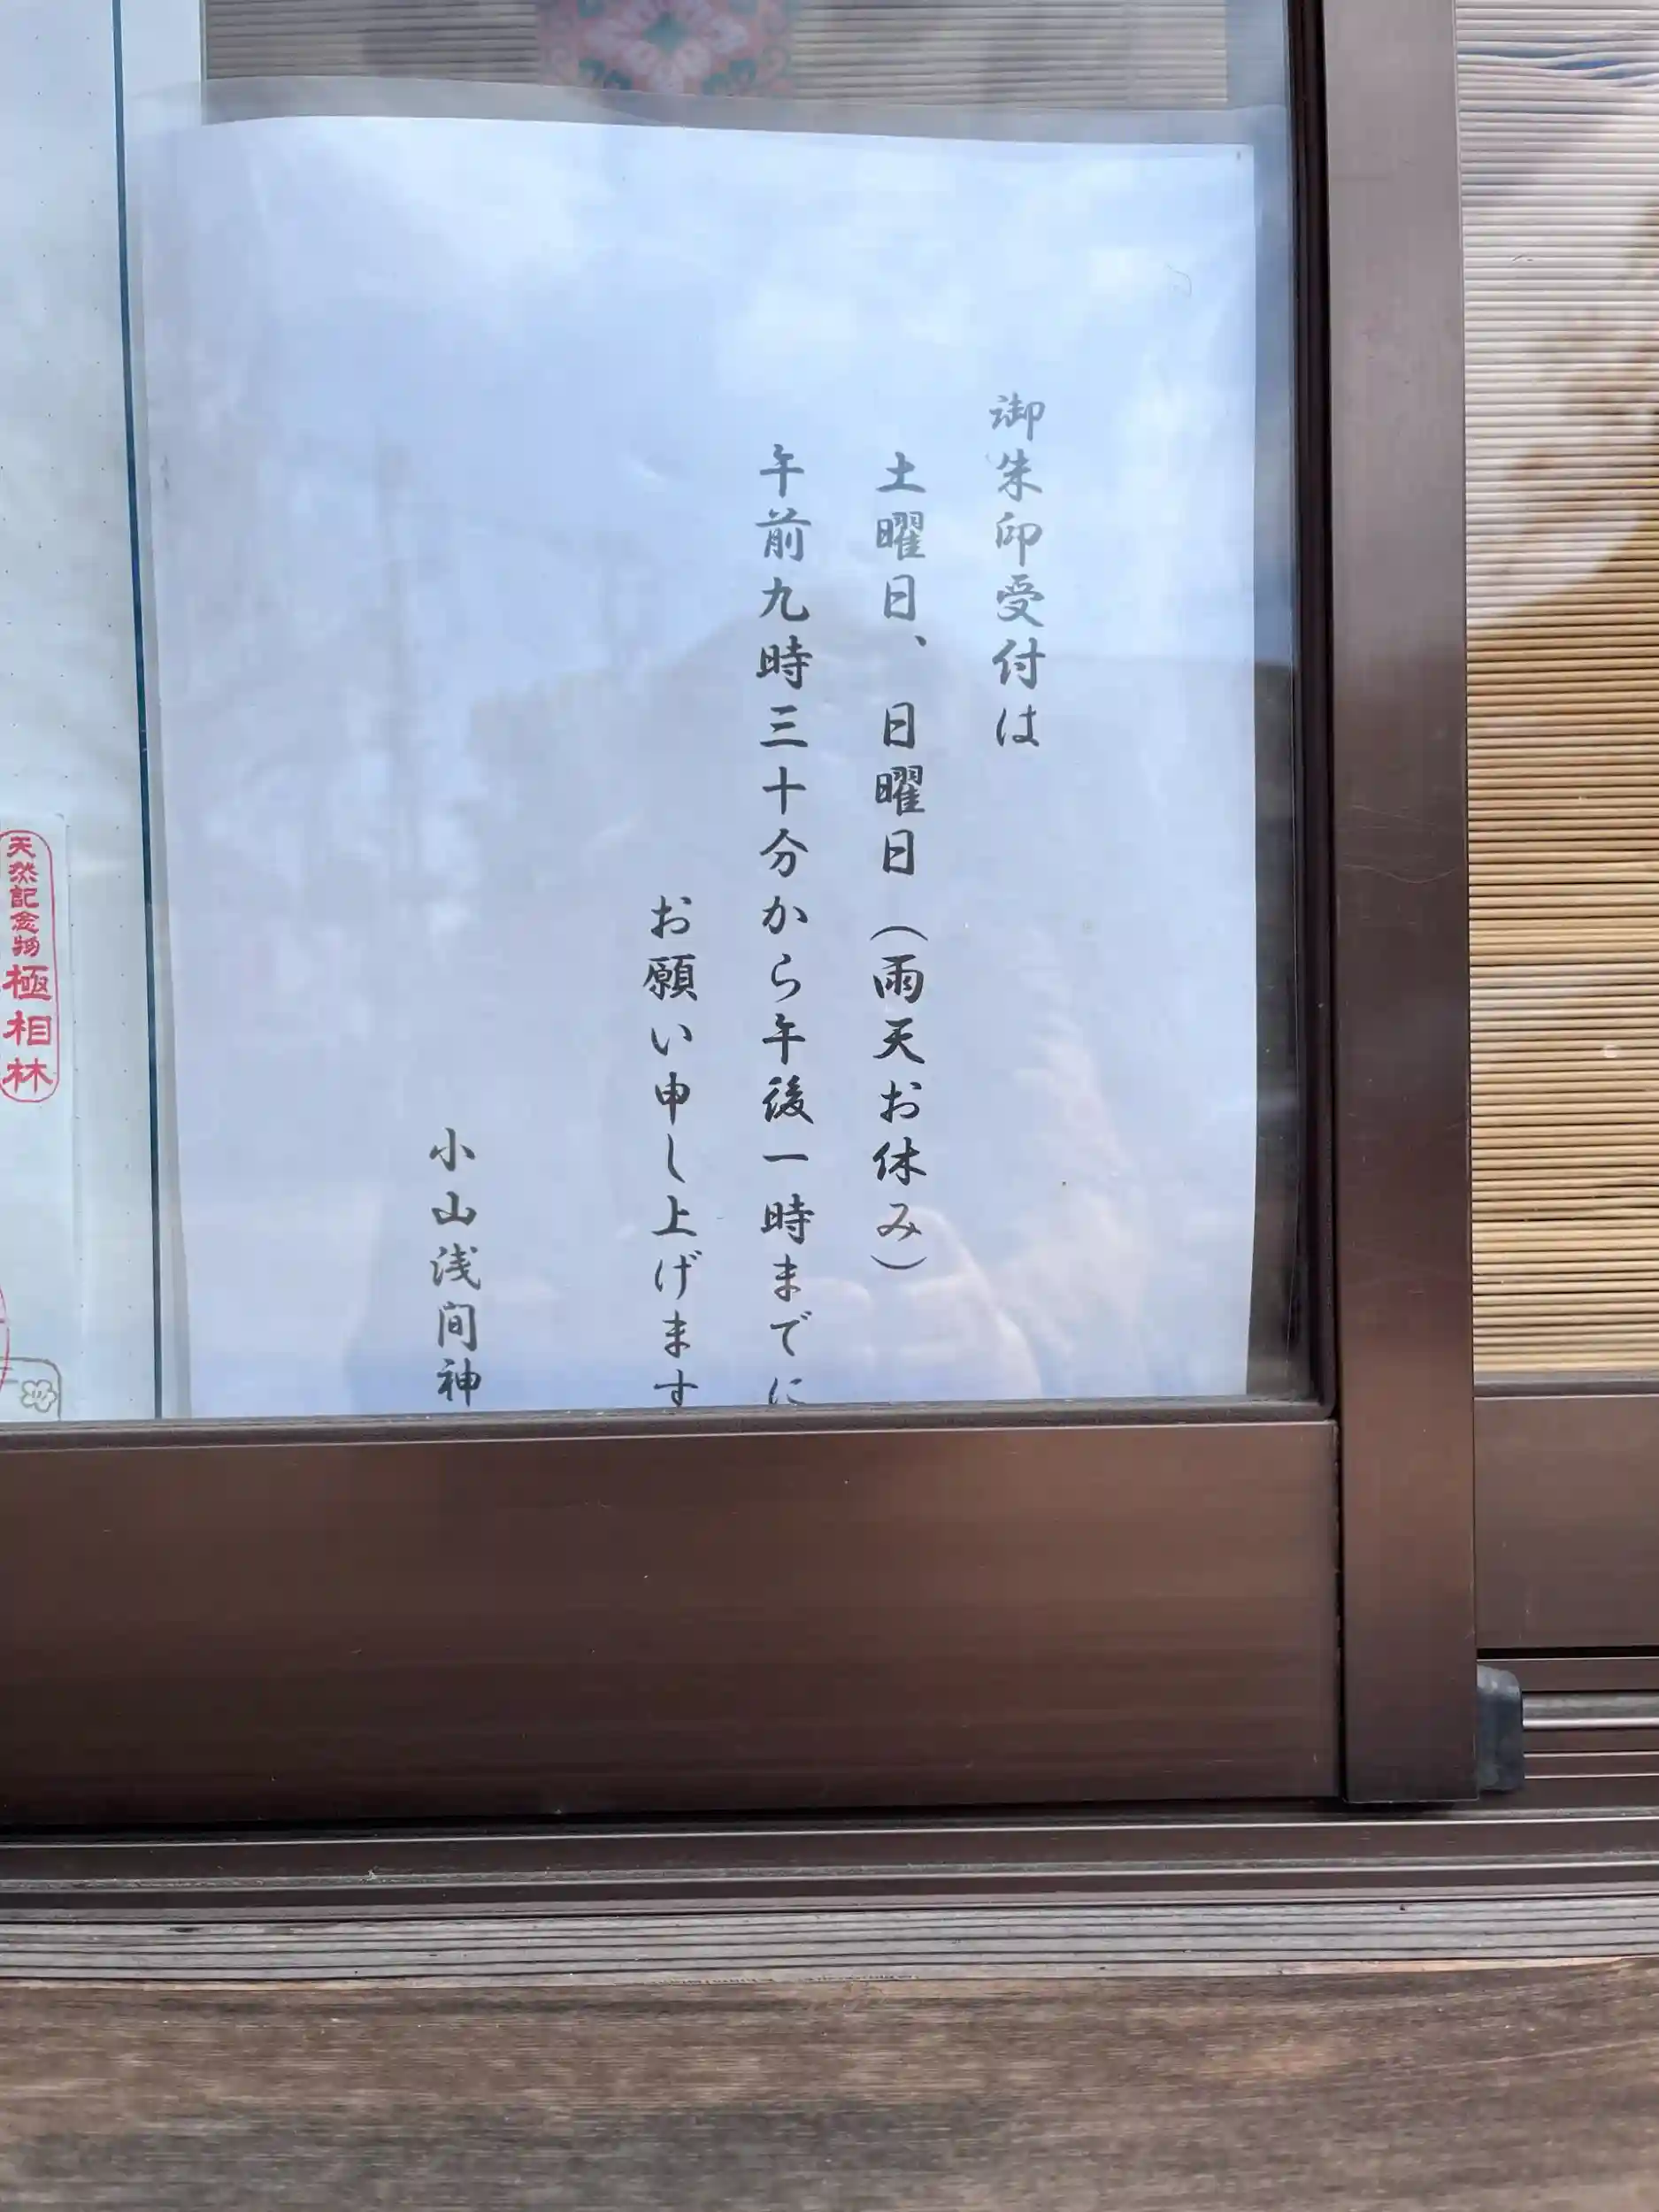 御朱印受付は
土曜日、日曜日（雨天お休み）
午前九時三十分から午後一時までに
お願い申し上げます
小山浅間神
天然記念物極相林